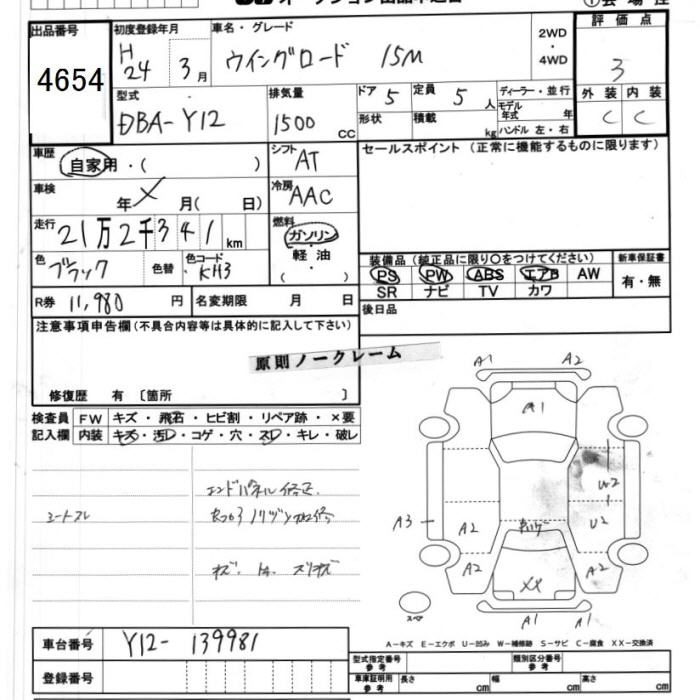 出品番号 初度登録年月 車名・グレード 2WD・4WD 評価点
4654 H24 3月 ウイングロード 15M 3
型式 排気量 ドア 5 定員 5人 ディーラー・並行 外装 内装
DBA-Y12 1500 CC 形状 積載 kg モデル年式 年 C C
ハンドル 左・右
車歴 自家用・( ) シフト AT セールスポイント (正常に機能するものに限ります)
車検 年 月( 日) 冷房 AAC
走行 21万2千341 km 燃料 ガソリン・軽油・( )
色 ブラック 色替 色コード KH3
装備品 (純正品に限り○をつけてください) 新車保証書
PS PW ABS エアB AW 有・無
SR ナビ TV カワ
R券 11,980 円 名変期限 月 日 後日品
注意事項申告欄(不具合内容等は具体的に記入して下さい)
原則ノークレーム
修復歴 有 〔箇所 〕
検査員 FW キズ・飛石・ヒビ割・リペア跡・×要
記入欄 内装 キズ・汚レ・コゲ・穴・スレ・キレ・破レ
エンドパネル修正
シートスレ
A1 A2
A1
W2
A3 A2 U2
A2 A2
XX
スペア A1 A1
A-キズ E-エクボ U-凹み W-補修跡 S-サビ C-腐食 XX-交換済
車台番号 Y12-139981
登録番号
型式指定番号 参考 類別区分番号 参考
車庫証明用 参考 長さ cm 幅 cm 高さ cm